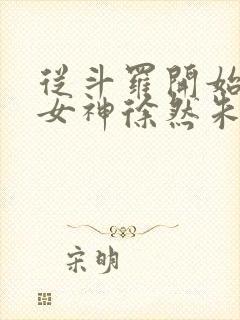 從斗羅開始
女神徐然朱
宋明